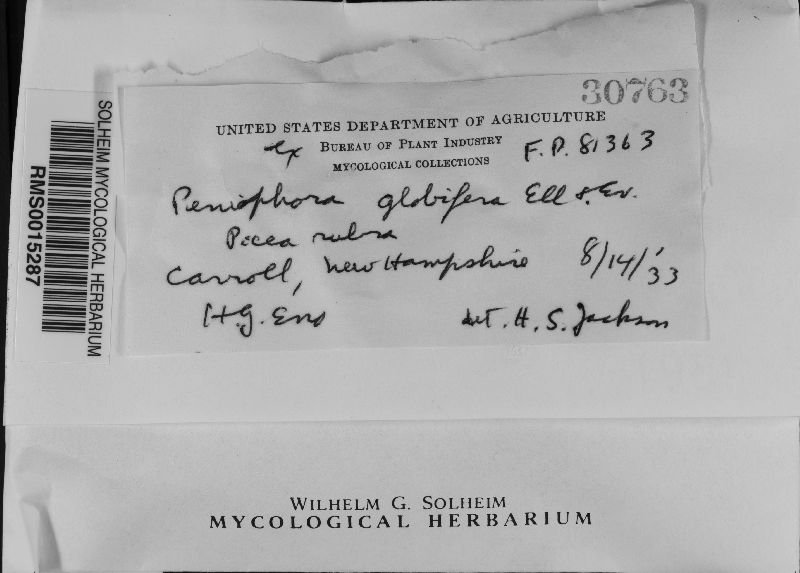 30763
UNITED STATES DEPARTMENT OF AGRICULTURE
ex BUREAU OF PLANT INDUSTRY F.P. 81363
MYCOLOGICAL COLLECTIONS
Peniophora globifera Ell & Ev.
Picea rubra
Carroll, New Hampshire 8/14/'33
H.G. Eno det. H. S. Jackson
SOLHEIM MYCOLOGICAL HERBARIUM
RMS0015287
WILHELM G. SOLHEIM
MYCOLOGICAL HERBARIUM